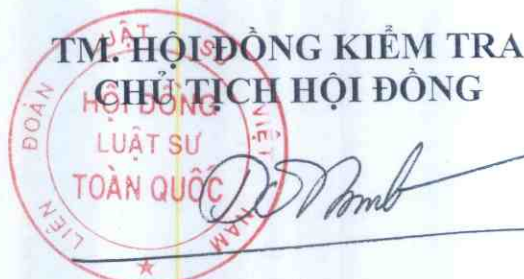 TM. HỘI ĐỒNG KIỂM TRA
CHỦ TỊCH HỘI ĐỒNG
LIÊN ĐOÀN LUẬT SƯ VIỆT NAM
HỘI ĐỒNG
LUẬT SƯ
TOÀN QUỐC